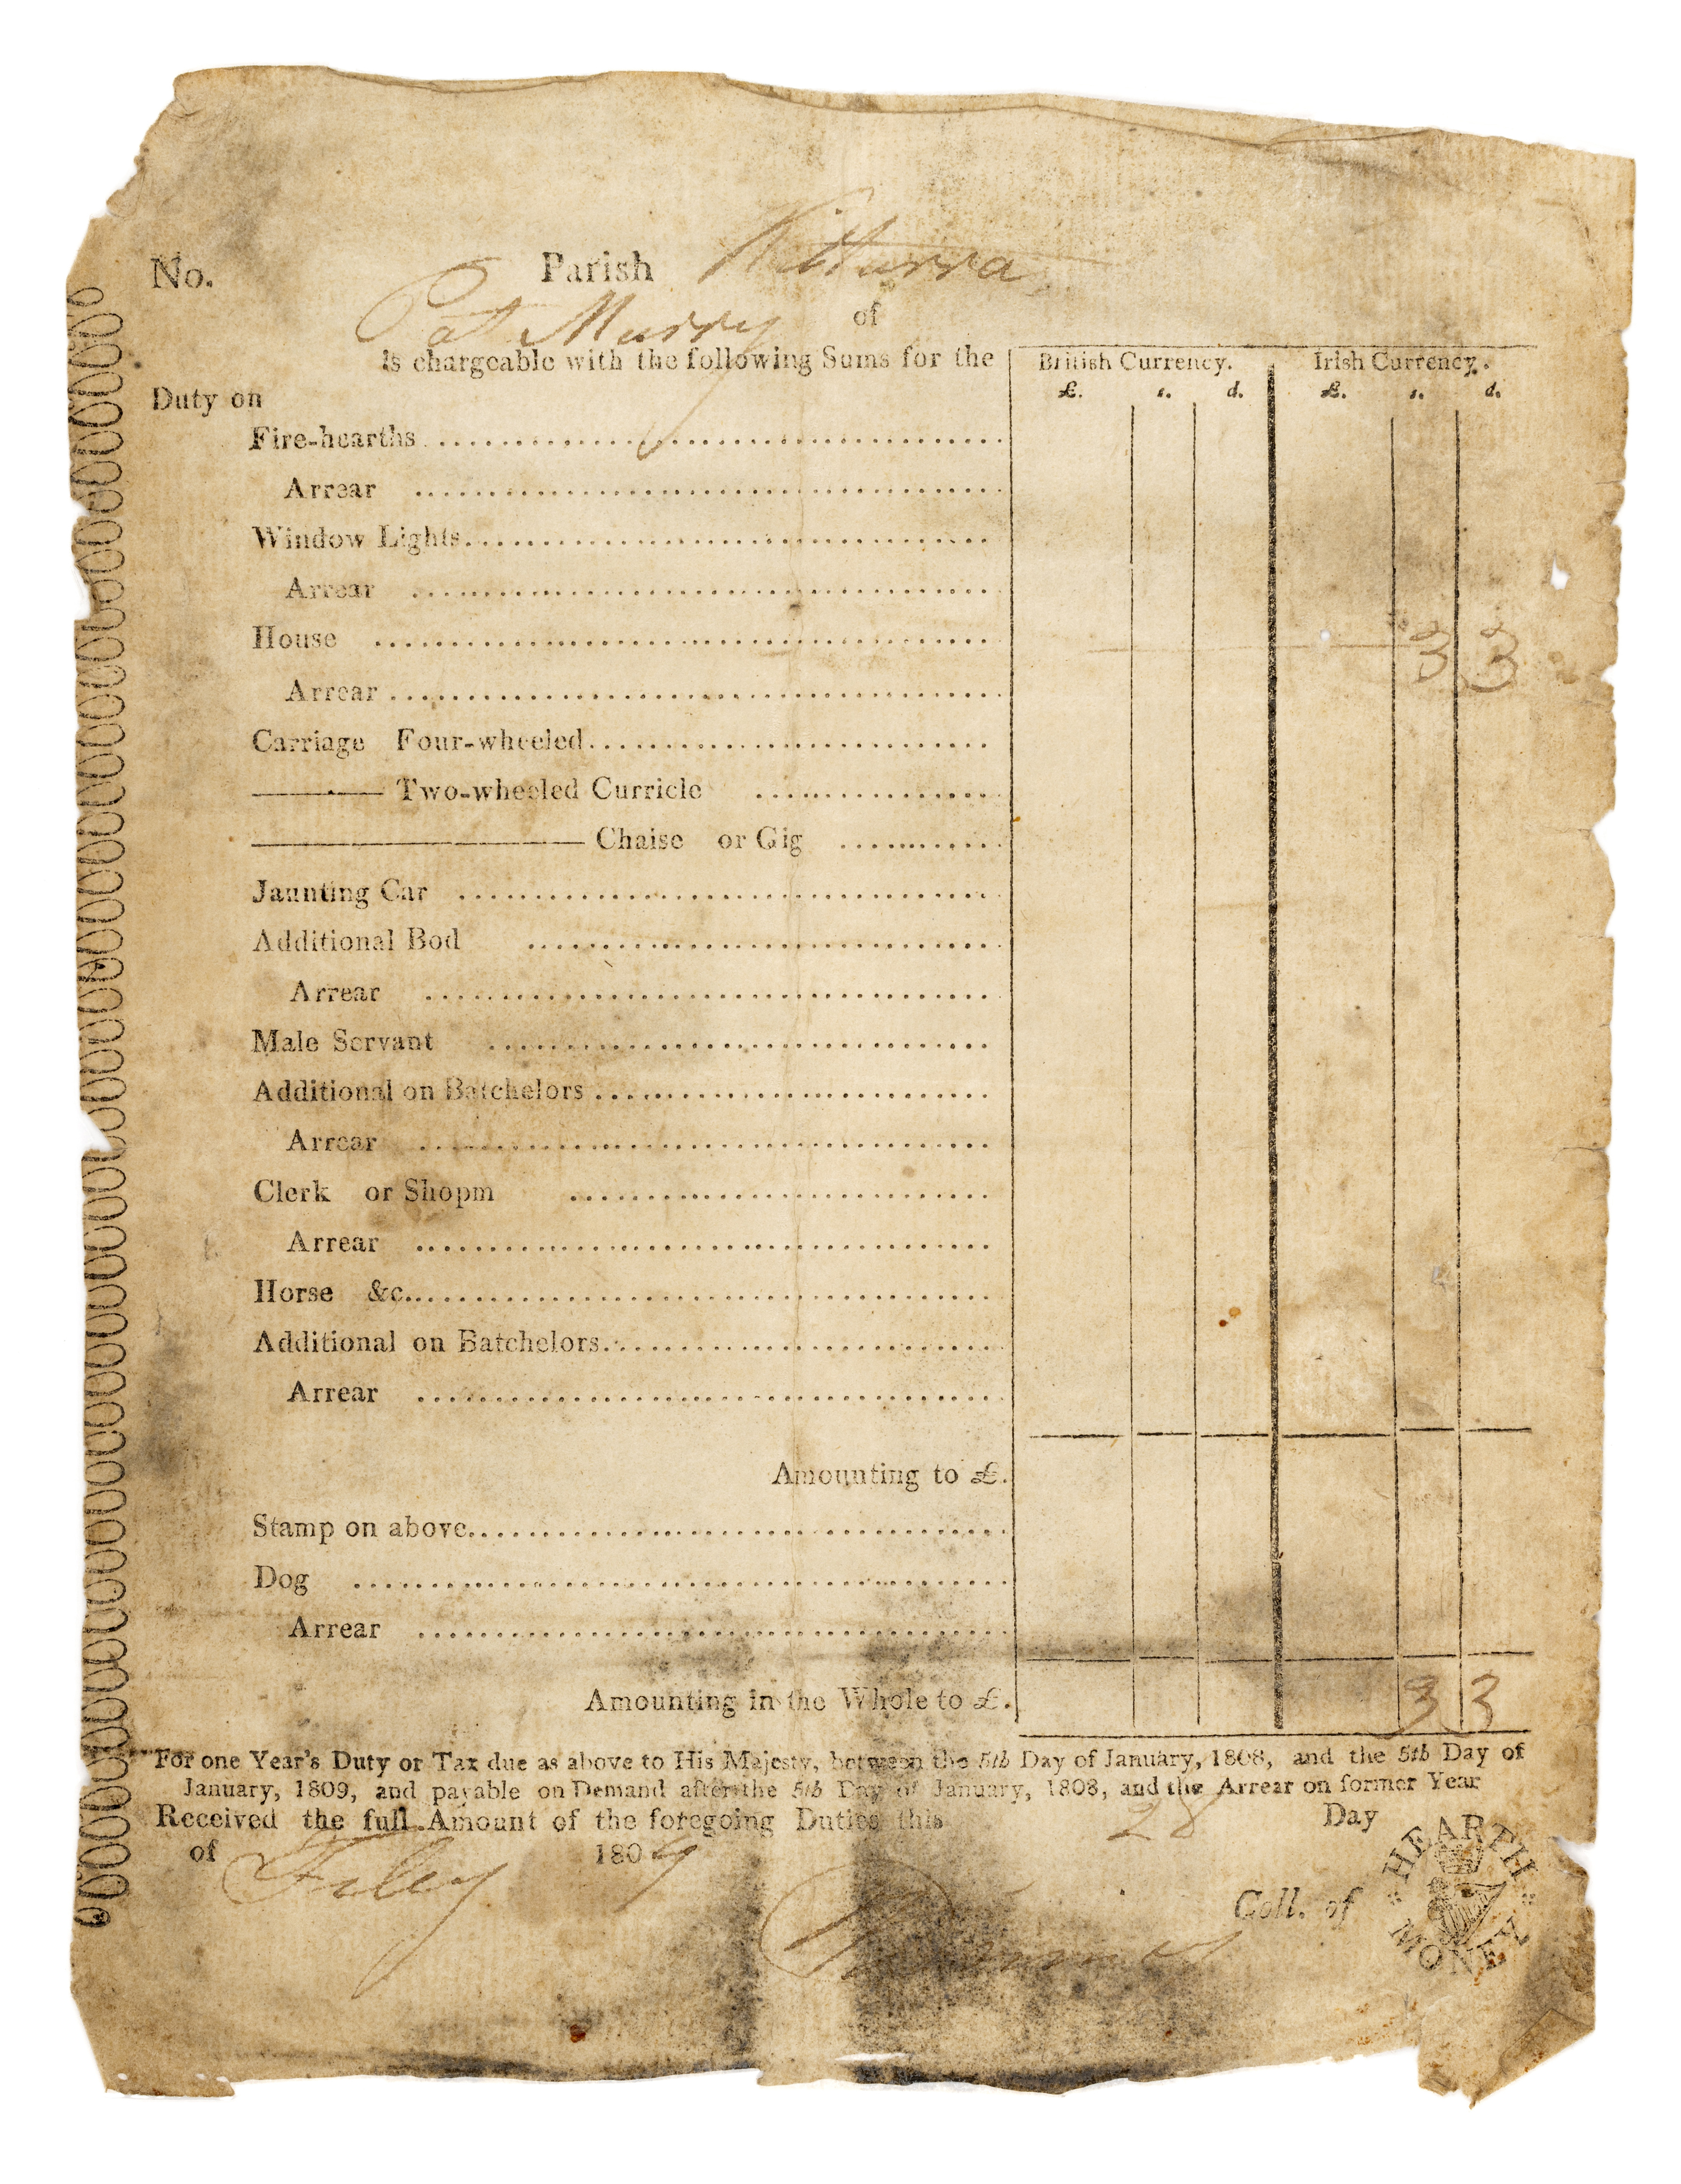 No. Parish Kilturra
Pat Murry of
is chargeable with the following Sums for the
British Currency. Irish Currency.
Duty on
£. s. d. £. s. d.
Fire-hearths
Arrear
Window Lights
Arrear
House 3 3
Arrear
Carriage Four-wheeled
Two-wheeled Curricle
Chaise or Gig
Jaunting Car
Additional Bod
Arrear
Male Servant
Additional on Batchelors
Arrear
Clerk or Shopm
Arrear
Horse &c.
Additional on Batchelors
Arrear
Amounting to £.
Stamp on above
Dog
Arrear
Amounting in the Whole to £. 3 3
For one Year's Duty or Tax due as above to His Majesty, between the 5th Day of January, 1808, and the 5th Day of
January, 1809, and payable on Demand after the 5th Day of January, 1808, and the Arrear on former Year
Received the full Amount of the foregoing Duties this 28 Day
of 1809
Coll. of
HEARTH
MONEY